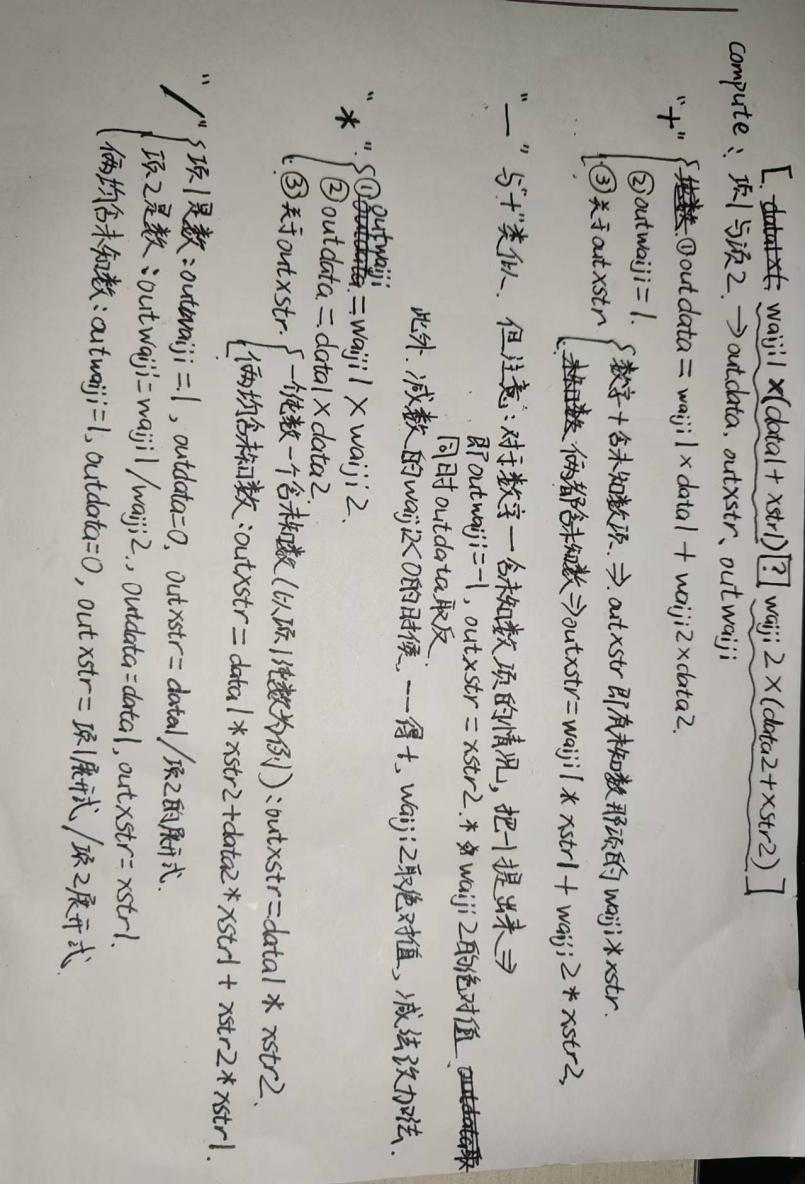 [ waiji1×(data1+xstr1) ? waiji2×(data2+xstr2) ]
compute: 项1与项2. → outdata、outxstr、outwaiji
"+" { ① outdata = waiji1×data1 + waiji2×data2.
② outwaiji=1.
③ 关于 outxstr { 数字+含未知数项. ⇒ outxstr 即有未知数那项的 waiji*xstr.
俩都含未知数 ⇒ outxstr=waiji1*xstr1 + waiji2*xstr2,
"—" 与"+"类似. 但注意: 对于数字-含未知数项的情况, 把-1提出来 ⇒
即 outwaiji=-1, outxstr=xstr2.*waiji2的绝对值
同时 outdata 取反.
此外. 减数的waiji<0的时候, --得+, waiji2取绝对值, 减法改加法.
"*". { ① outwaiji = waiji1 × waiji2.
② outdata = data1 × data2.
③ 关于 outxstr. { 一个纯数一个含未知数 (以项1纯数为例): outxstr=data1* xstr2.
俩均含未知数: outxstr = data1*xstr2+data2*xstr1 + xstr2*xstr1.
"/" { 项1是数: outwaiji=1, outdata=0, outxstr=data1/项2的展开式.
项2是数: outwaiji=waiji1/waiji2., outdata=data1, outxstr=xstr1.
俩均含未知数: outwaiji=1, outdata=0, outxstr=项1展开式/项2展开式.